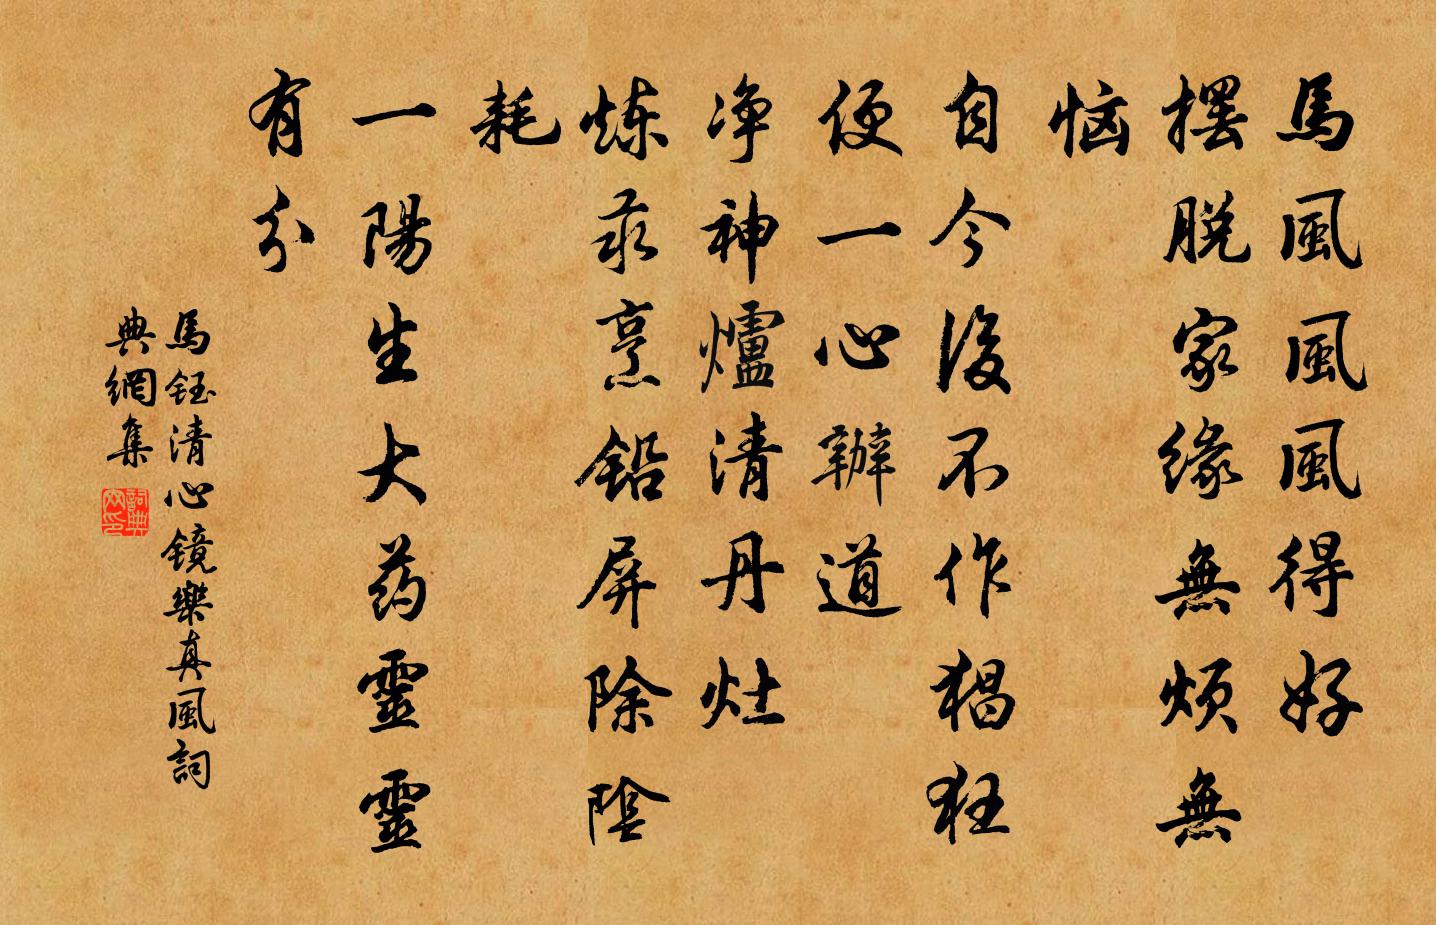 馬風風風得好
擺脱家緣無煩無
恼
自今後不作猖狂
便一心辦道
净神爐清丹灶
炼汞烹铅屏除陰
耗
一陽生大药靈靈
有分
馬鈺清心镜樂真風詞
典網集
詞典網印